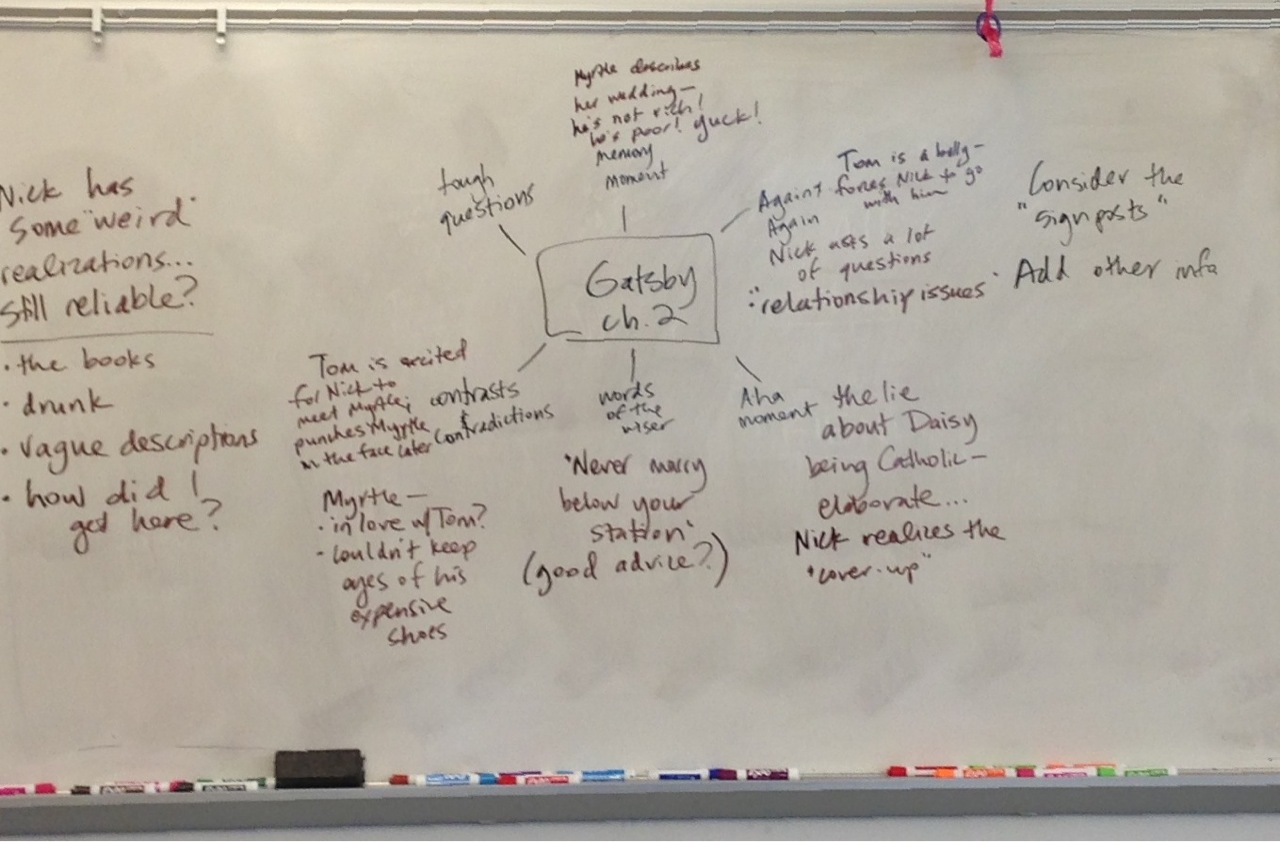 Nick has
some "weird"
realizations...
still reliable?
· the books
· drunk
· vague descriptions
· how did I
get here?
tough
questions
Myrtle describes
her wedding—
he's not rich!
he's poor! yuck!
memory
moment
Gatsby
ch. 2
Again &
Again
Tom is a bully—
forces Nick to go
with him
Nick asks a lot
of questions
"relationship issues"
Consider the
"signposts"
Add other info
Tom is excited
for Nick to
meet Myrtle;
punches Myrtle
in the face later
contrasts
&
contradictions
Myrtle—
· in love w/ Tom?
· couldn't keep
eyes of his
expensive
shoes
words
of the
wiser
"Never marry
below your
station"
(good advice?)
Aha
moment
the lie
about Daisy
being Catholic—
elaborate...
Nick realizes the
"cover-up"